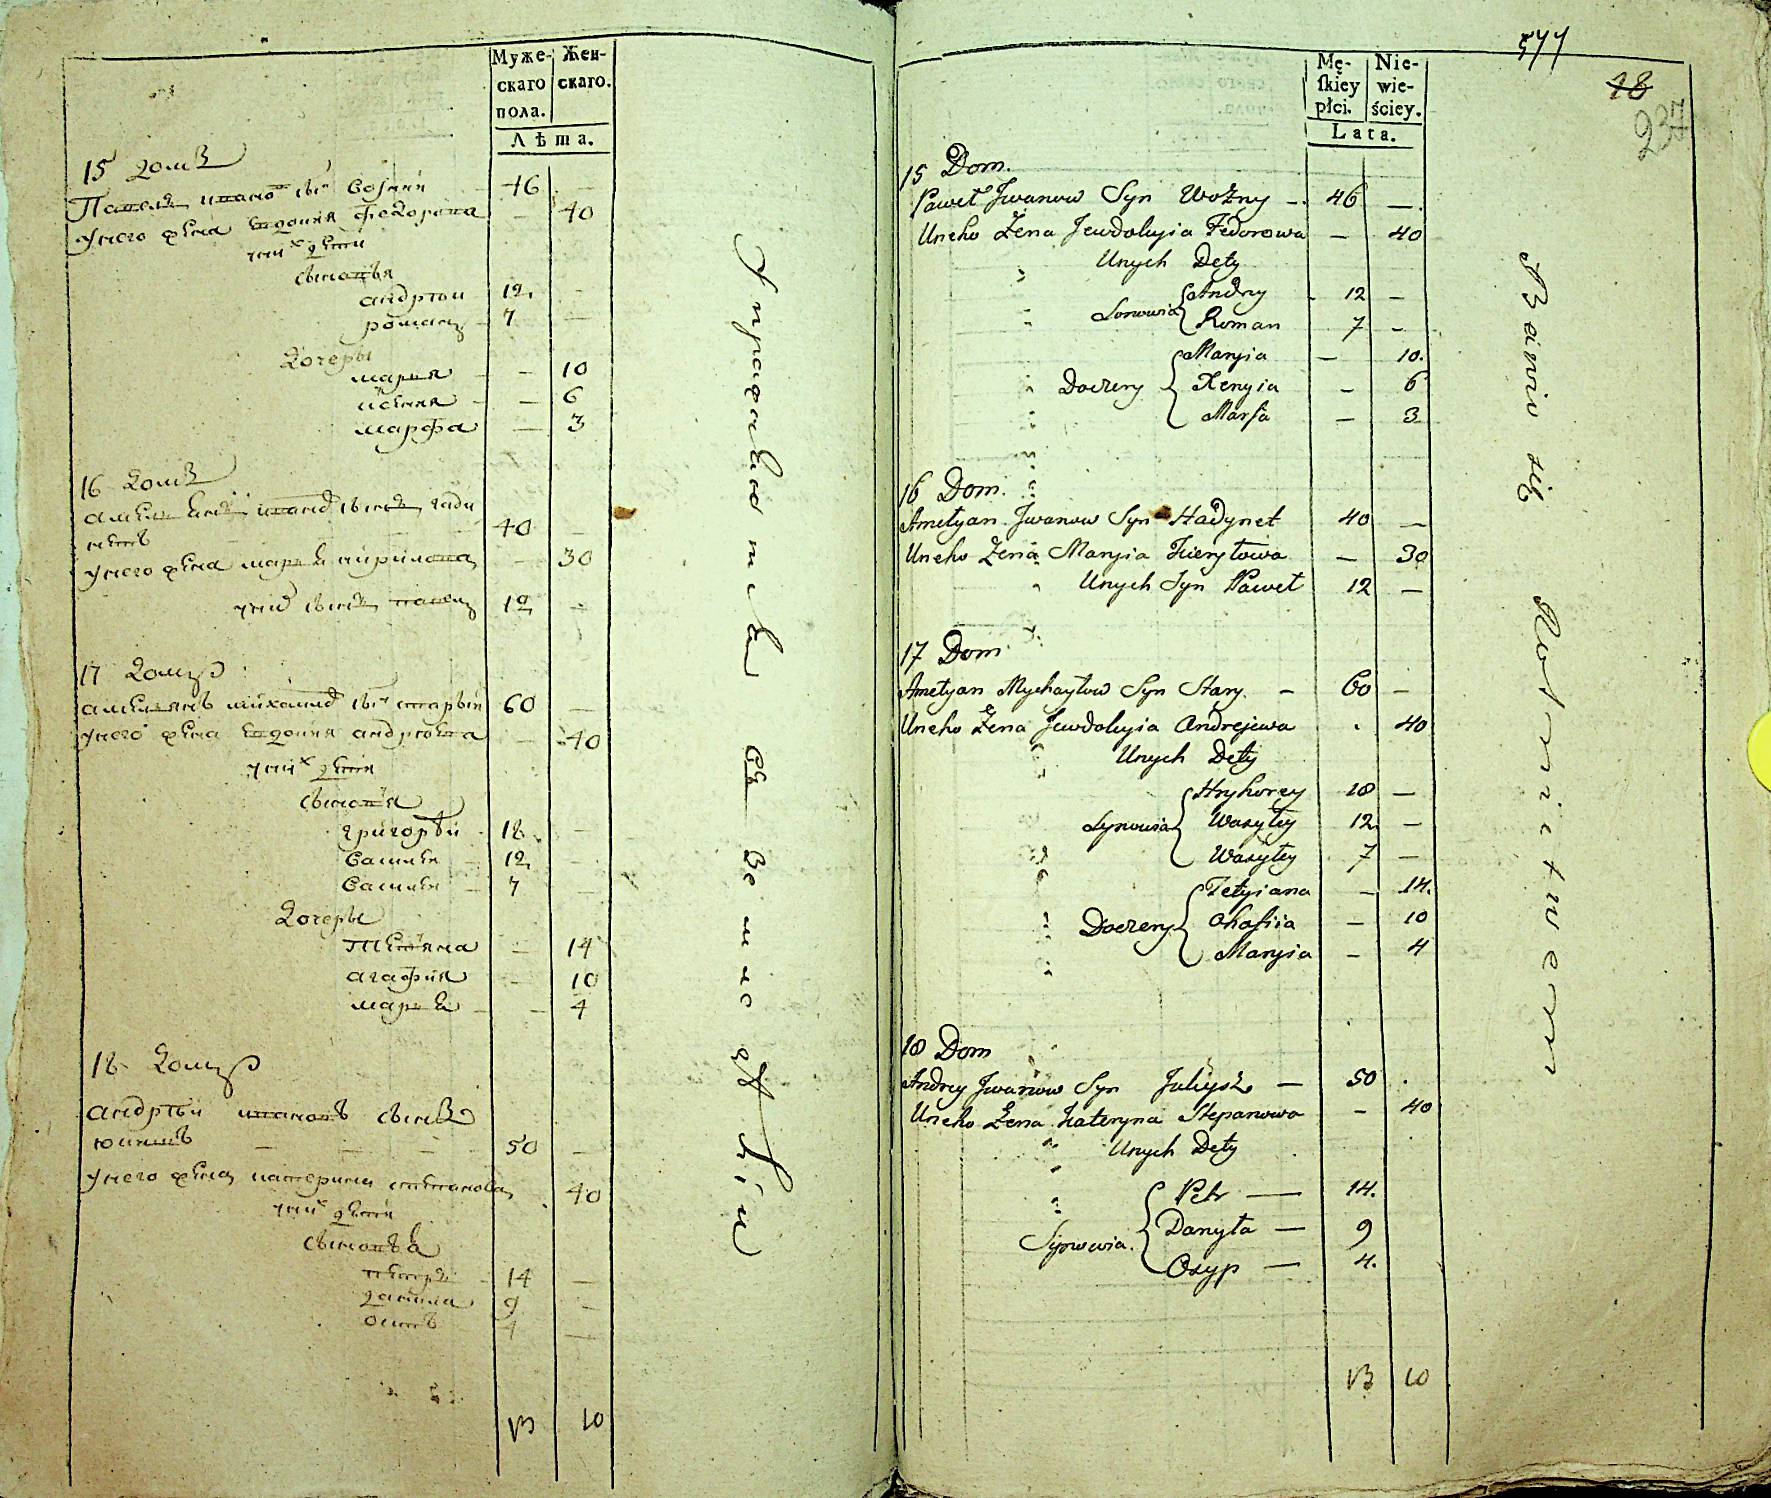 Муже- Жен-
скаго скаго.
пола.
Лѣта.
15 домъ
Павелъ Ивановъ сынъ Возный — 46 —
У него жена Евдокия Федорова — 40
у них дети
сыновья
андрѣи 12 —
романъ 7 —
дочеры
марья — 10
— 6
марфа — 3
16 домъ
40 —
У него жена марья кирилова — 30
у них сынъ павелъ 12 —
17 домъ
амельянъ михаилов сынъ старый 60 —
У него жена Евдокия андрѣева — 40
у них дети
сыновья
григорѣй 18 —
василей 12 —
василей 7 —
дочеры
татьяна — 14
агафия — 10
марья — 4
18 домъ
андрѣй ивановъ сынъ
50 —
У него жена катерина степанова 40
у них дети
сыновья
петръ 14 —
данила 9 —
осипъ 4 —
13 10
Упражняются въ земледѣлии
577
18
237
Mę- Nie-
ſkiey wie-
płci. ściey.
Lata.
15 Dom.
Paweł Jwanow Syn Woźny — 46 —
Uneho Żena Jewdokyia Fedorowa — 40
Unych Dety
Synowia { Andry 12 —
Roman 7 —
Doczery { Maryia — 10.
Xenyia — 6
Marfa — 3
16 Dom.
Amelyan Jwanow Syn Hadynet 40 —
Uneho Żena Maryia Kieryłowa — 30
Unych Syn Paweł 12 —
17 Dom
Amelyan Mychayłow Syn Stary. — 60 —
Uneho Żena Jewdokyia Andrejewa . 40
Unych Dety
Synowia { Hryhorey 18 —
Wasyley 12 —
Wasyley 7 —
Doczery { Tetyiana — 14.
Ohafiia — 10
Maryia — 4
18 Dom
Andrey Jwanow Syn — 50 .
Uneho Żena Kateryna Stepanowa — 40
Unych Dety
Synowia. { Petr — 14.
Danyła — 9
Osyp — 4.
13 10
Bawią się Rolnictwem